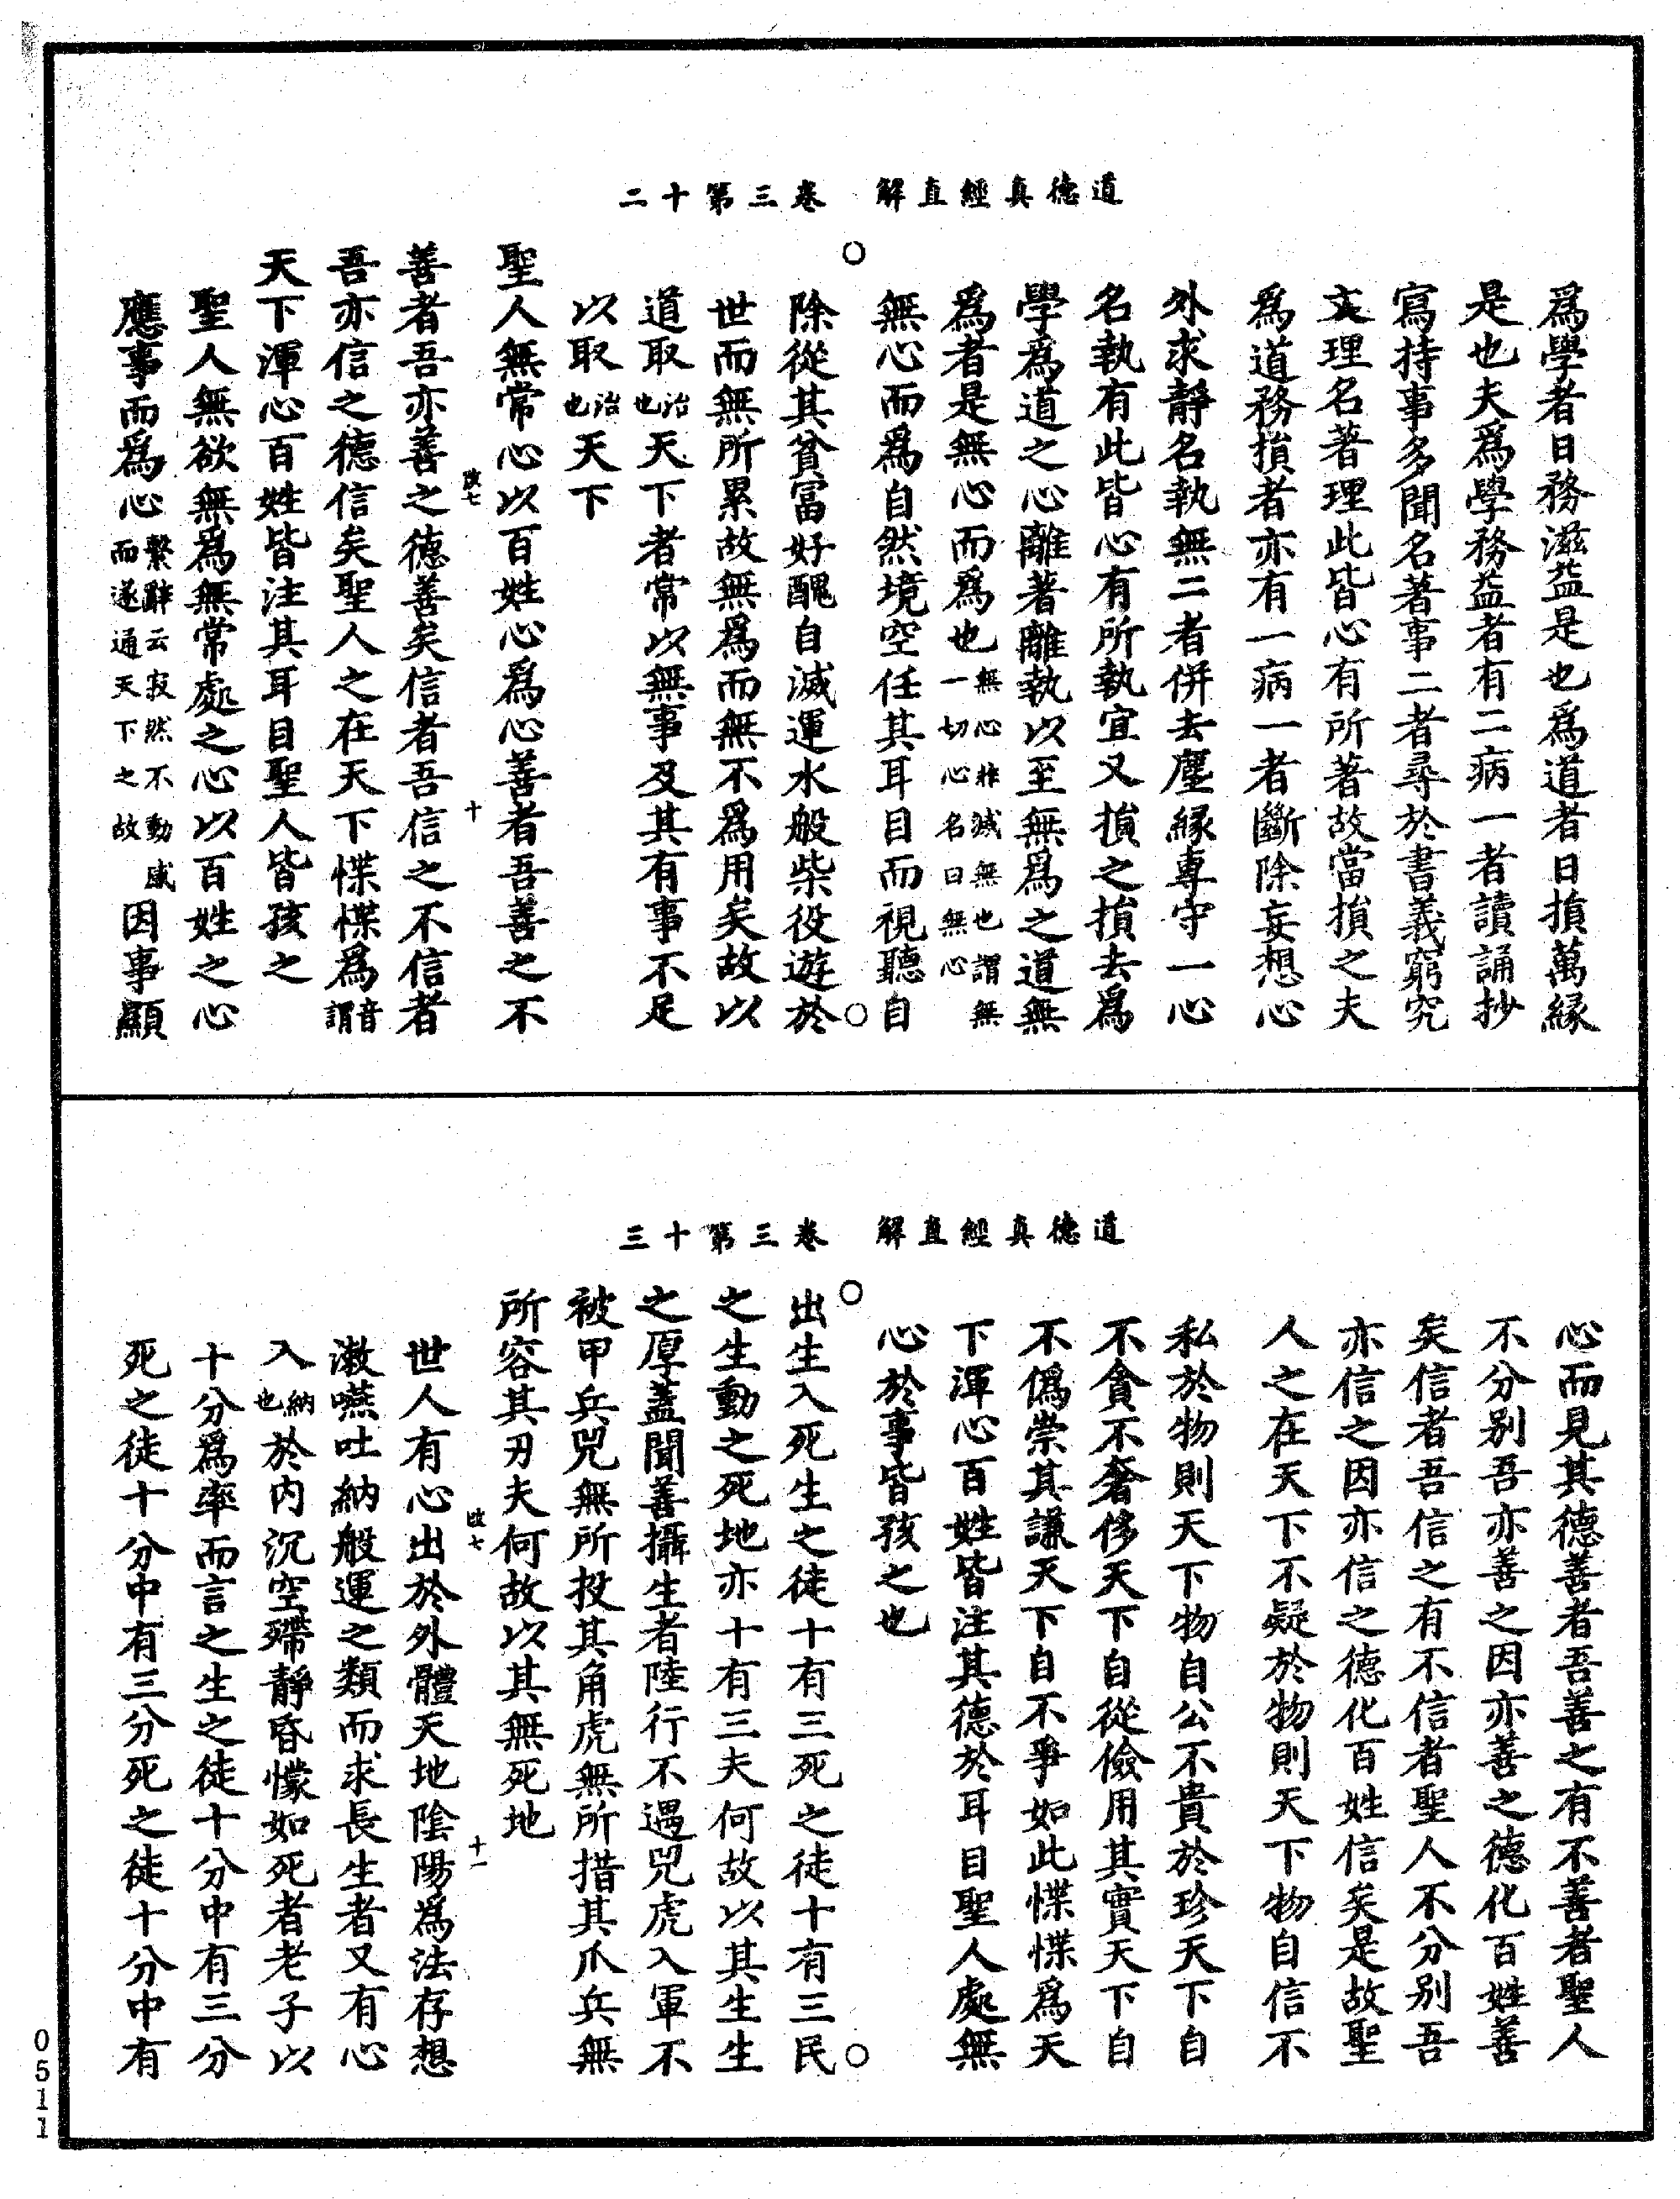 道德真經直解　卷三第十二
爲學者日務滋益是也爲道者日損萬緣
是也夫爲學務益者有二病一者讀誦抄
寫持事多聞名著事二者尋於書義窮究
玄理名著理此皆心有所著故當損之夫
爲道務損者亦有一病一者斷除妄想心
外求靜名執無二者併去塵緣專守一心
名執有此皆心有所執宜又損之損去爲
學爲道之心離著離執以至無爲之道無
爲者是無心而爲也無心非滅無也謂無一切心名曰無心
無心而爲自然境空任其耳目而視聽自
○
除從其貧富好醜自滅運水般柴役遊於
世而無所累故無爲而無不爲用矣故以
道取治也天下者常以無事及其有事不足
以取治也天下
聖人無常心以百姓心爲心善者吾善之不
改七　十
善者吾亦善之德善矣信者吾信之不信者
吾亦信之德信矣聖人之在天下惵惵爲音謂
天下渾心百姓皆注其耳目聖人皆孩之
聖人無欲無爲無常處之心以百姓之心
應事而爲心繫辭云寂然不動感而遂通天下之故因事顯
道德真經直解　卷三第十三
心而見其德善者吾善之有不善者聖人
不分別吾亦善之因亦善之德化百姓善
矣信者吾信之有不信者聖人不分別吾
亦信之因亦信之德化百姓信矣是故聖
人之在天下不疑於物則天下物自信不
私於物則天下物自公不貴於珍天下自
不貪不奢侈天下自從儉用其實天下自
不僞崇其謙天下自不爭如此惵惵爲天
下渾心百姓皆注其德於耳目聖人處無
心於事皆孩之也
○
出生入死生之徒十有三死之徒十有三民
之生動之死地亦十有三夫何故以其生生
之厚蓋聞善攝生者陸行不遇兕虎入軍不
被甲兵兕無所投其角虎無所措其爪兵無
所容其刃夫何故以其無死地
改七　十一
世人有心出於外體天地陰陽爲法存想
漱嚥吐納般運之類而求長生者又有心
入納也於內沉空殢靜昏懞如死者老子以
十分爲率而言之生之徒十分中有三分
死之徒十分中有三分死之徒十分中有
0511